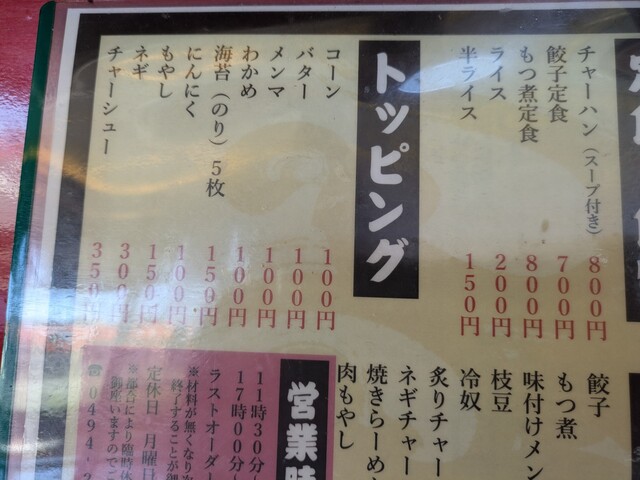 チャーハン（スープ付き） 800円
餃子定食 700円
もつ煮定食 800円
ライス 200円
半ライス 150円
トッピング
コーン 100円
バター 100円
メンマ 100円
わかめ 100円
海苔（のり）5枚 150円
にんにく 100円
もやし 150円
ネギ 300円
チャーシュー 350円
餃子
もつ煮
味付けメン
枝豆
冷奴
炙りチャー
ネギチャー
焼きらーめ
肉もやし
営業時
11時30分
17時00分
ラストオーダー
※材料が無くなり次
終了することが御
定休日 月曜日
※都合により臨時休
御座いますのでご
☎0494-2